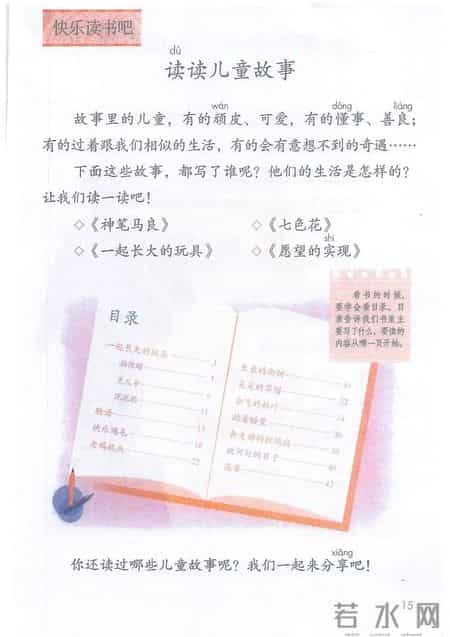 快乐读书吧
dú
读读儿童故事
wán dǒng liáng
故事里的儿童，有的顽皮、可爱，有的懂事、善良；
有的过着跟我们相似的生活，有的会有意想不到的奇遇……
下面这些故事，都写了谁呢？他们的生活是怎样的？
让我们读一读吧！
◇《神笔马良》 ◇《七色花》
shí
◇《一起长大的玩具》 ◇《愿望的实现》
看书的时候，
要学会看目录。目
录告诉我们书里主
要写了什么，要读的
内容从哪一页开始。
目录
一起长大的玩具
兔儿爷
15
xiǎng
你还读过哪些儿童故事呢？我们一起来分享吧！
若水网